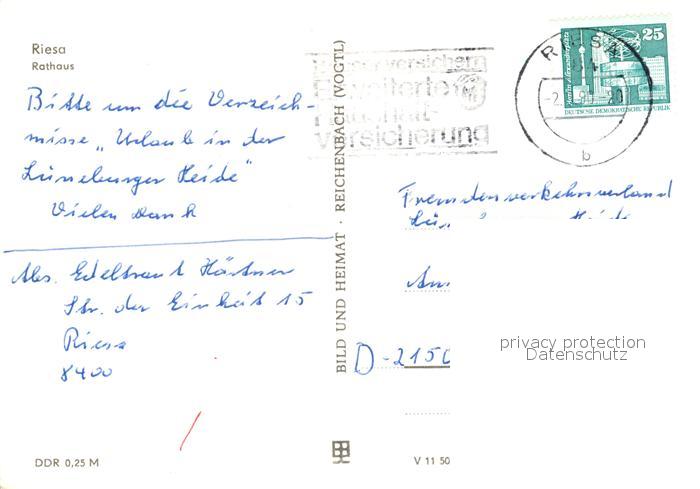 Riesa
Rathaus
Bitte um die Verzeich-
nisse „Urlaub in der
Lüneburger Heide"
Vielen Dank
Abs. Edeltraut Härtner
Str. der Einheit 15
Riesa
8400
DDR 0,25 M
BILD UND HEIMAT · REICHENBACH (VOGTL)
versichern
erweiterte
Haushalt-
versicherung
RIESA
b
25
DEUTSCHE DEMOKRATISCHE REPUBLIK
Fremdenverkehrsverband
D-2150
privacy protection
Datenschutz
V 11 50